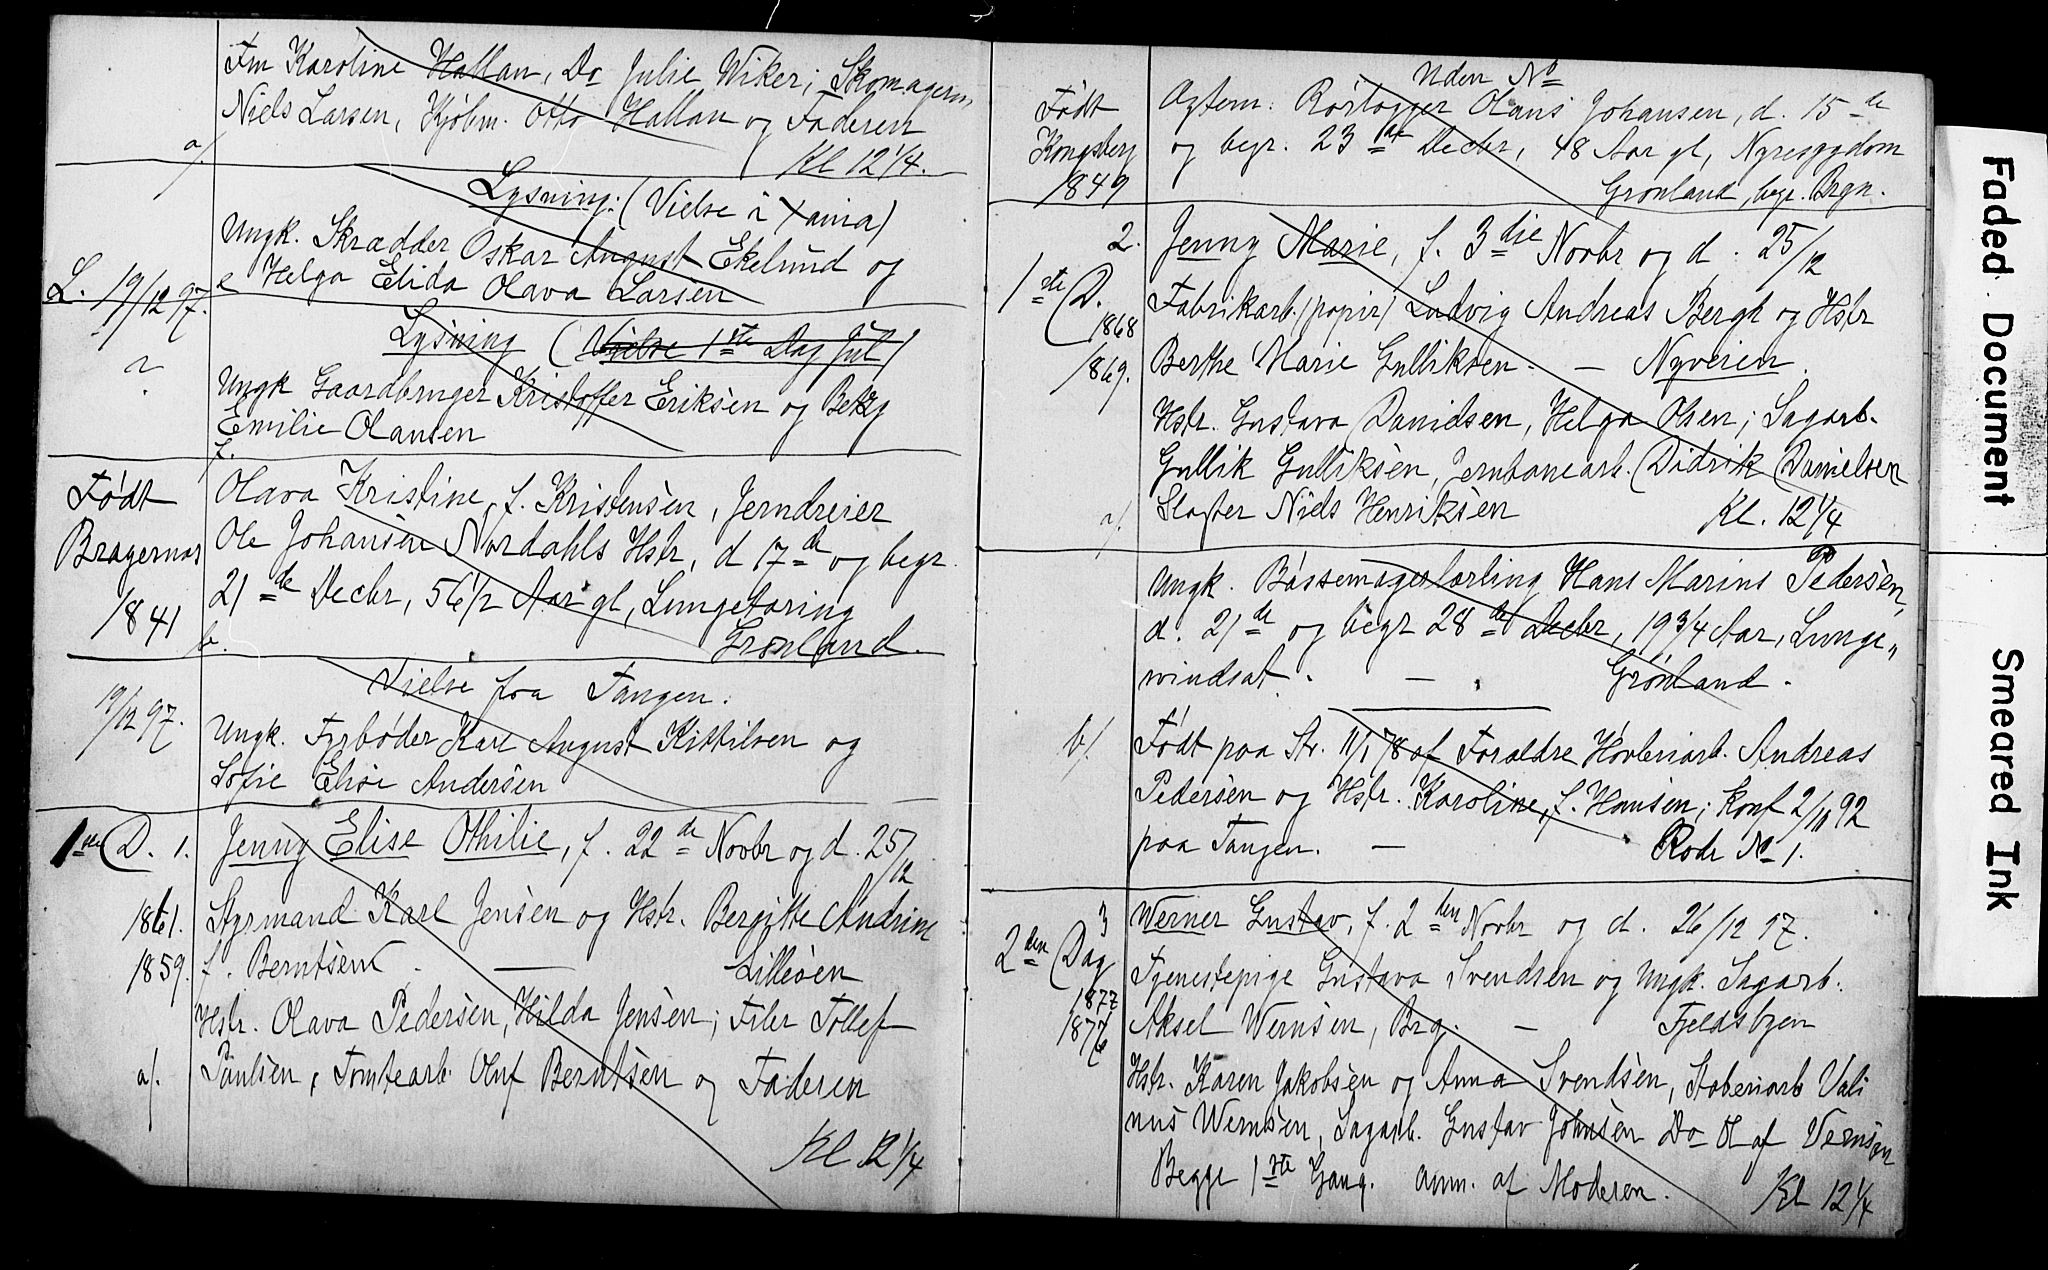 Frn Karoline Hallan, Do Julie Wiker; Skomagerm,
Niels Larsen, Kjøbm. Otto Hallan og Faderen
a/. Kl 12 1/4.
Lysning: (Vielse i
Ungk. Skrædder Oskar August Ekelund og
L. 19/12 97. e Helga Elida Olava Larsen
Lysning (Vielse 1ste Dag Jul)
?
Ungk Gaardbruger Kristoffer Eriksen og Betzy
Emilie Olausen
f.
Født Olava Kristine, f. Kristensen, Jerndreier
Bragernæs Ole Johansen Nordahls Hstr, d 17de og begr.
1841 21de Decbr, 56 1/2 Aar gl, Lungetæring
b. Grønland.
Vielse fra Tangen.
19/12 97. Ungk. Fyrbøder Karl August Kittilsen og
Sofie Elise Andersen
1ste D. 1. Jenny Elise Othilie, f. 22de Novbr og d. 25/12
1861. Styrmand Karl Jensen og Hstr. Bergitte Andrine
1859. f. Berntsen. — Lilleøen
Hstr. Olava Pedersen, Hilda Jensen; Filer Tollef
a/. Paulsen, Tomtearb. Oluf Berntsen og Faderen
Kl 12 1/4
Uden No
Født Agtem. Rørlægger Olaus Johansen, d. 15de
Kongsberg og begr. 23de Decbr, 48 Aar gl, Nyresygdom
1849 Grønland, begr. Brgn.
2. Jenny Marie, f. 3die Novbr og d. 25/12
1ste D. 1868 Fabrikarb. (papir) Ludvig Andreas Bergh og Hstr
1869. Berthe Marie Gulliksen. — Nyveien.
Hstr. Gustava Davidsen, Helga Olsen; Sagarb.
Gullik Gulliksen, Jernbanearb. Didrik Danielsen
a/. Slagter Niels Henriksen Kl. 12 1/4
Ungk. Bøssemagerlærling Hans Marius Pedersen,
d. 21de og begr 28de Decbr, 19 3/4 Aar, Lunge„
windsot. — Grønland.
b/. Født paa Str. 11/1 78 af Forældre Høvleriarb. Andreas
Pedersen og Hstr. Karoline, f. Hansen; konf 2/10 92
paa Tangen. — Rode No 1.
3 Werner Gustav, f. 2den Novbr og d. 26/12 97.
2den Dag Tjenestepige Gustava Svendsen og Ungk. Sagarb.
1877
1876 Aksel Wernsen, Brg. — Fjeldsbyen
Hstr. Karen Jakobsen og Anna Svendsen, Stoberiarb Vali
nus Wernsen, Sagarb. Gustav Johnsen Do Olaf Vernsen
Begge 1ste Gang. Anm. af Moderen. Kl 12 1/4
Faded Document
Smeared Ink